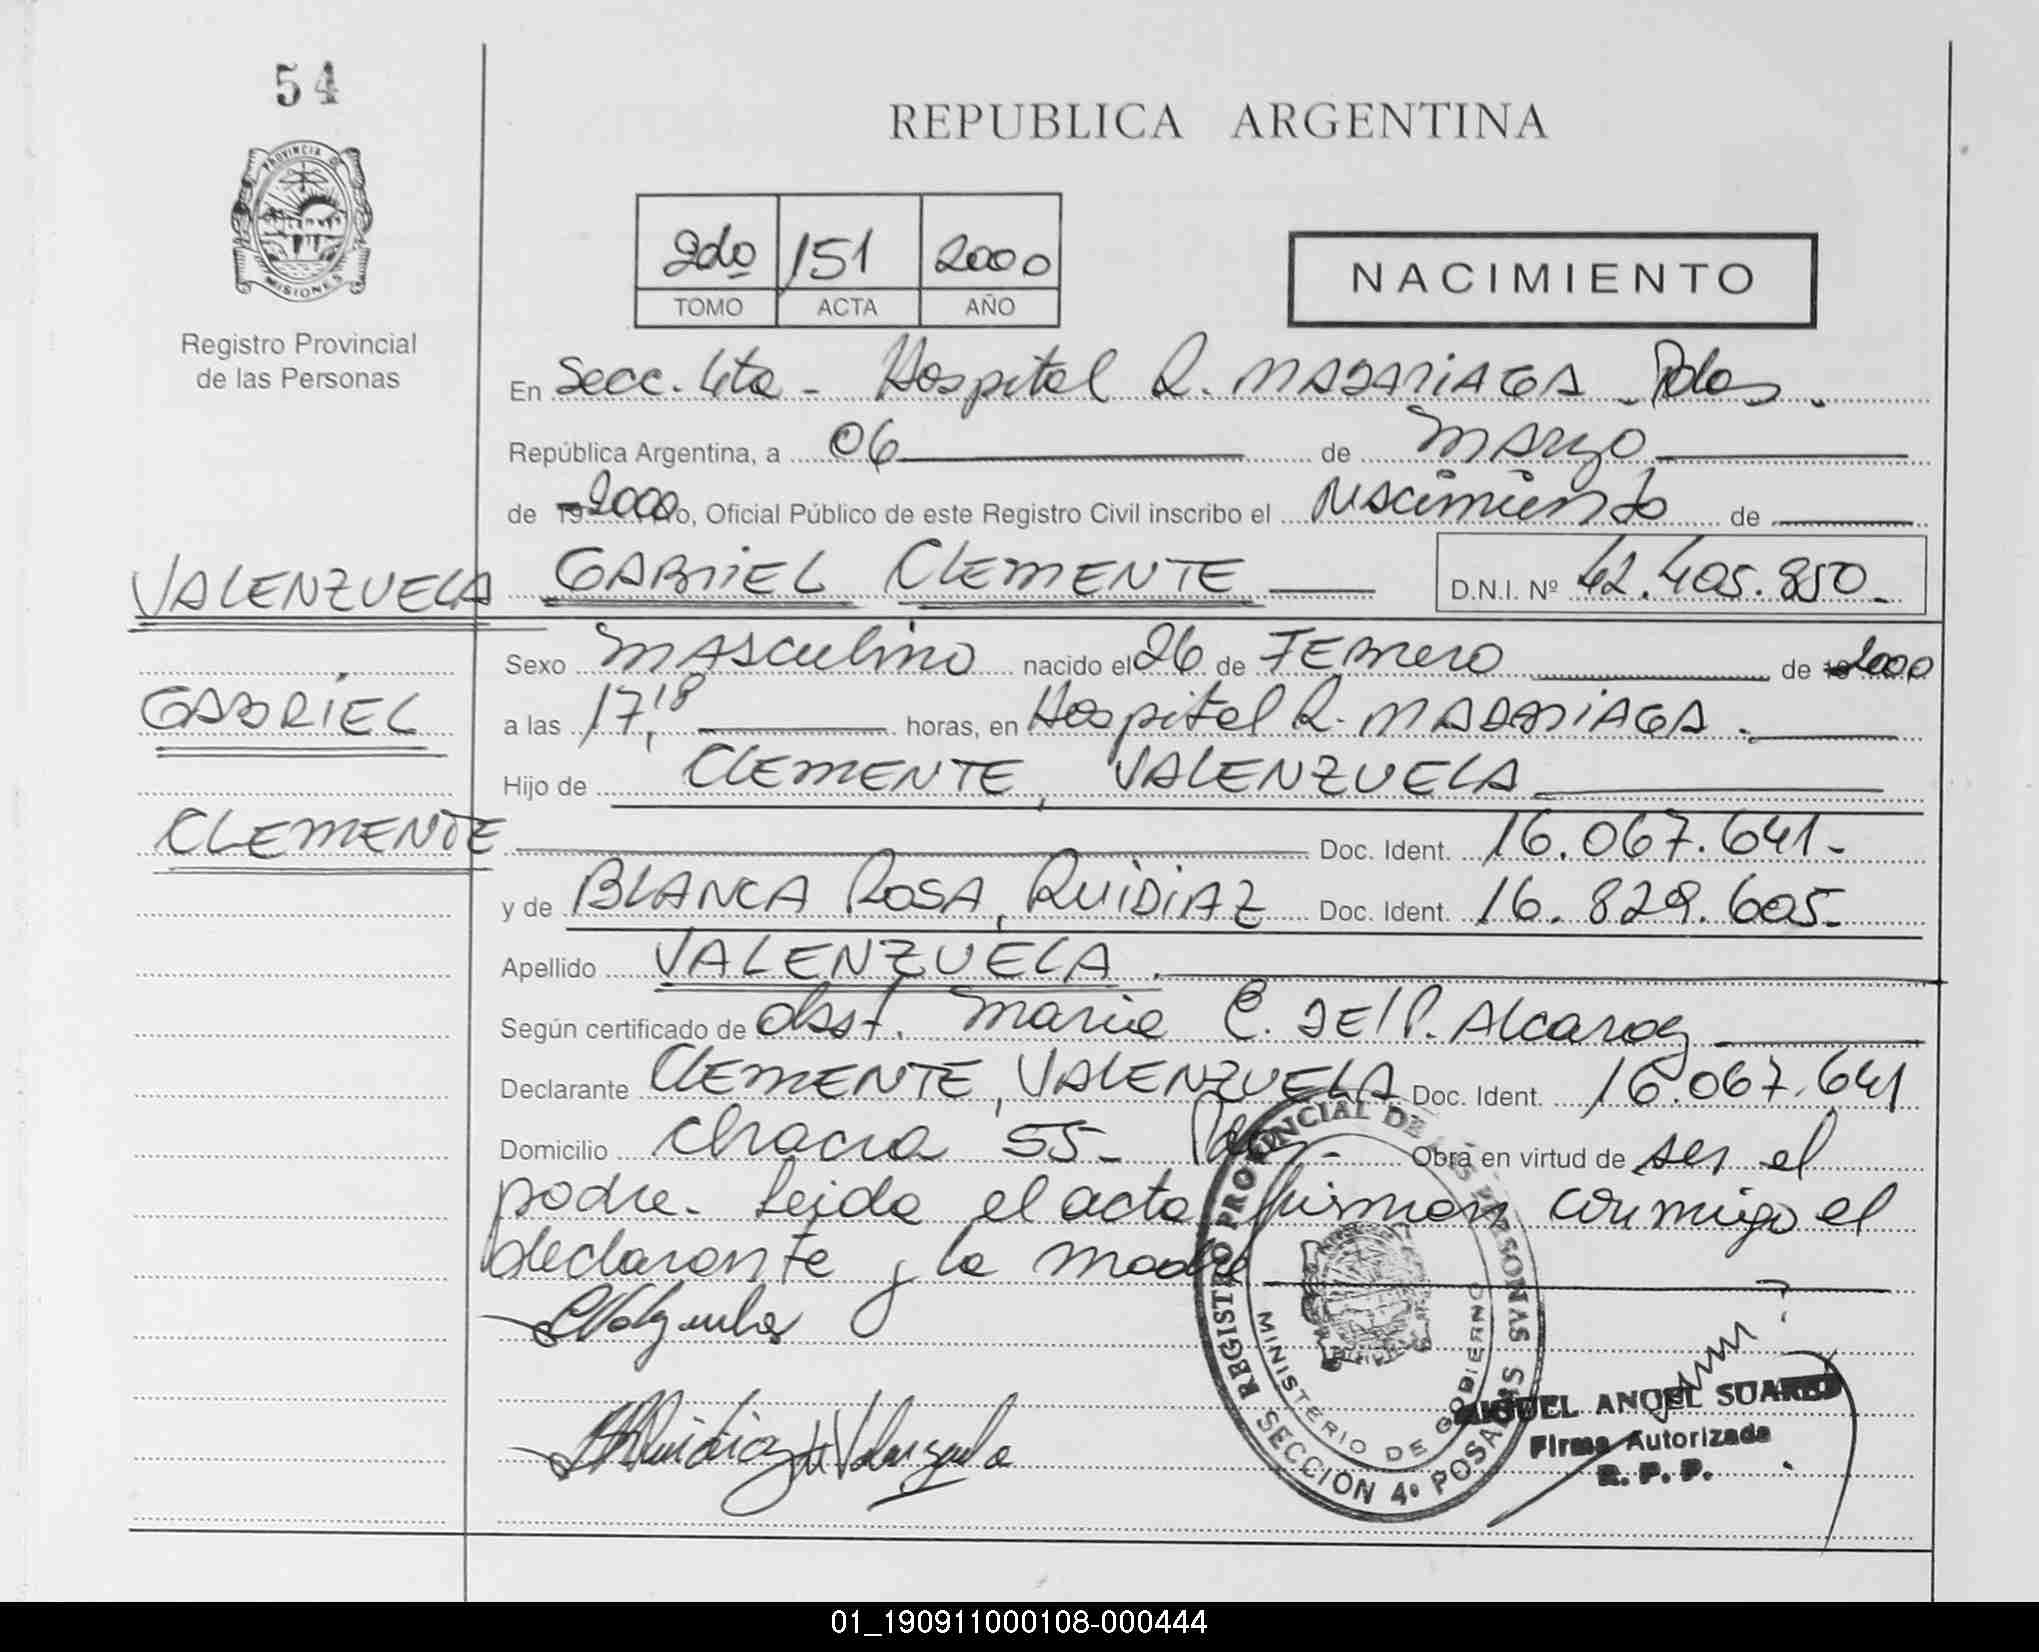 54
REPUBLICA ARGENTINA
PROVINCIA D
MISIONES
Registro Provincial
de las Personas
2do 151 2000
TOMO ACTA AÑO
NACIMIENTO
En Secc. 4ta - Hospital R. MADARIAGA - Pdas.
República Argentina, a 06 de Marzo
de 2000 o, Oficial Público de este Registro Civil inscribo el Nacimiento de
VALENZUELA GABRIEL CLEMENTE D.N.I. Nº 42.405.850.
Sexo MASculino nacido el 26 de FEBrero de 2000
GABRIEL a las 17,18 horas, en Hospital R. MADARIAGA.
Hijo de CLEMENTE, VALENZUELA
CLEMENTE Doc. Ident. 16.067.641-
y de BLANCA ROSA, RUIDIAZ Doc. Ident. 16.829.605-
Apellido VALENZUELA.
Según certificado de obst. Maria C. DEL P. Alcaraz
Declarante CLEMENTE, VALENZUELA Doc. Ident. 16.067.641
Domicilio Chacra 55- Pdas. Obra en virtud de ser el
padre. Leida el acta firman conmigo el
declarante y la madre
REGISTRO PROVINCIAL DE LAS PERSONAS
MINISTERIO DE GOBIERNO
SECCION 4º POSADAS
MIGUEL ANGEL SUAREZ
Firma Autorizada
R. P. P.
01_190911000108-000444